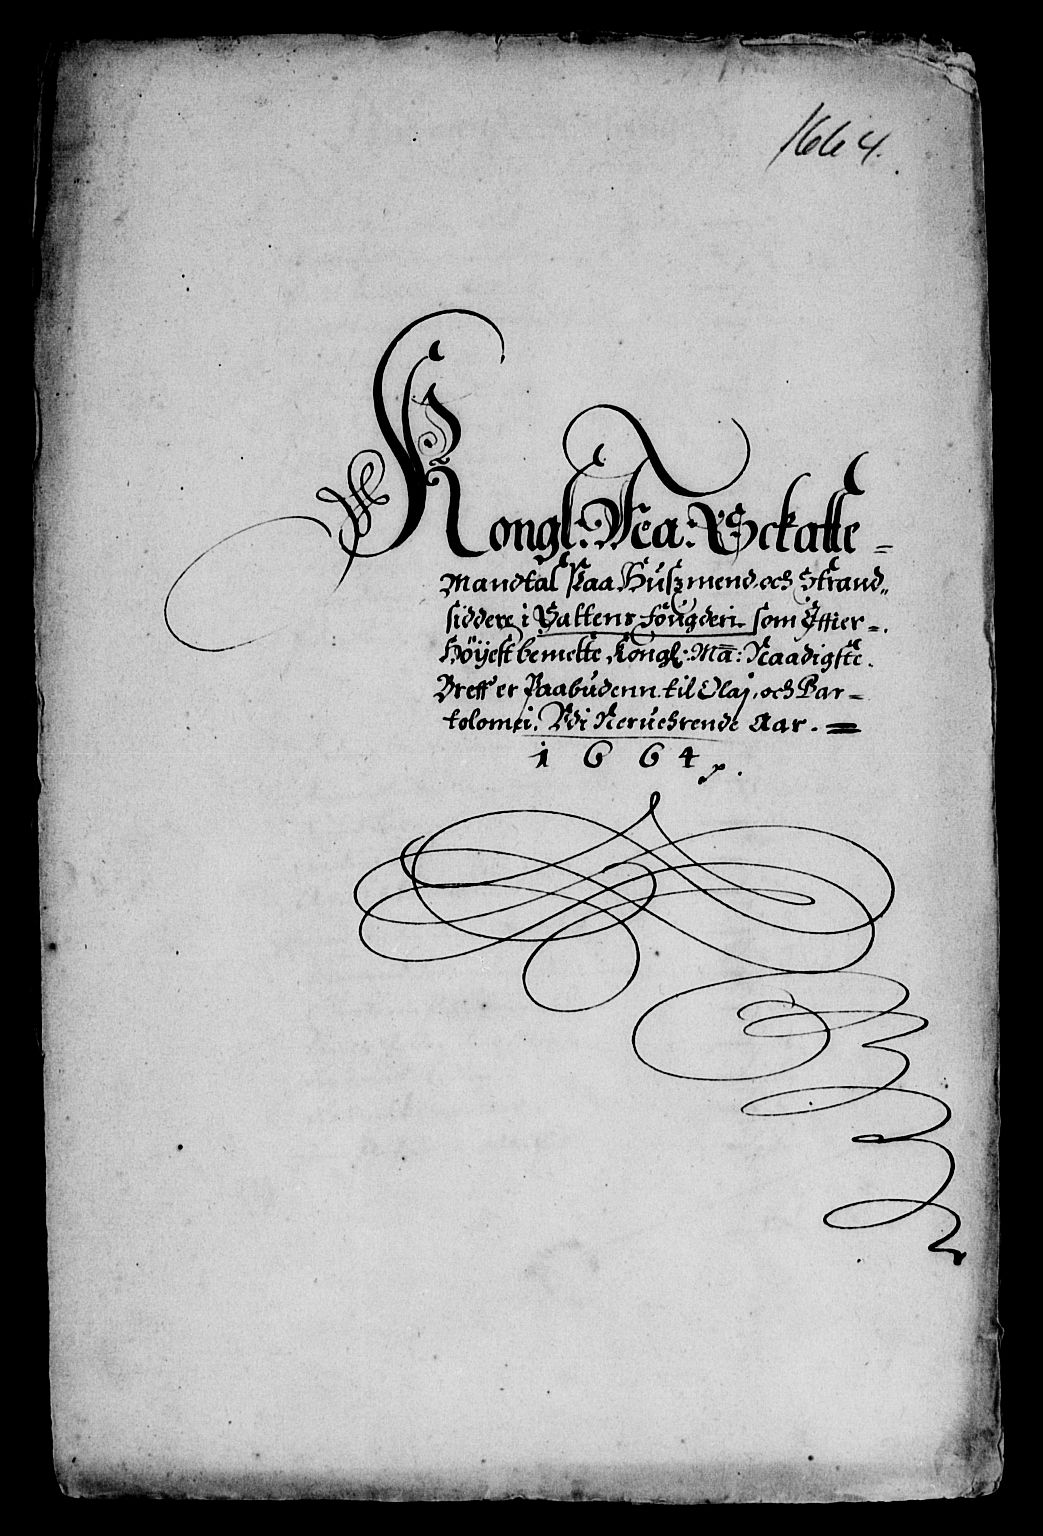 1664.
Kongl: Ma: Schatte=
Mandtal Paa Huszmend och Strand„
siddere i Saltens Fougderi som Effter=.
Höÿest bemelte Kongl: Ma: Naadigste.
Breff er Paabudenn til Olaj, och Bar=
tolomei. Udi Neruehrende Aar. =
1664